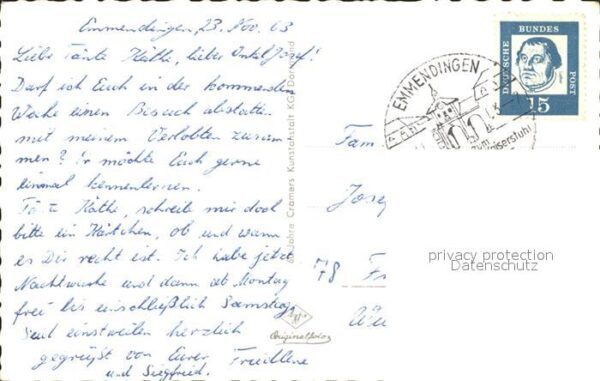 Emmendingen, 23. Nov. 63
Liebe Tante Käthe, lieber Onkel Josef!
Darf ich Euch in der kommenden
Woche einen Besuch abstatten
mit meinem Verlobten zusam
men? Er möchte Euch gerne
einmal kennenlernen.
Tante Käthe, schreibe mir doch
bitte ein Kärtchen, ob und wann
es Dir recht ist. Ich habe jetzt
Nachtwache und dann ab Montag
frei bis einschließlich Samstag.
Seid einstweilen herzlich
gegrüßt von Eurer Friedlene
und Siegfried.
Jahre Cramers Kunstanstalt KG, Dortmund
Originalfoto
EMMENDINGEN
zum
Kaiserstuhl
DEUTSCHE
BUNDES
POST
15
Fam
Jose
78 Fr
privacy protection
Datenschutz